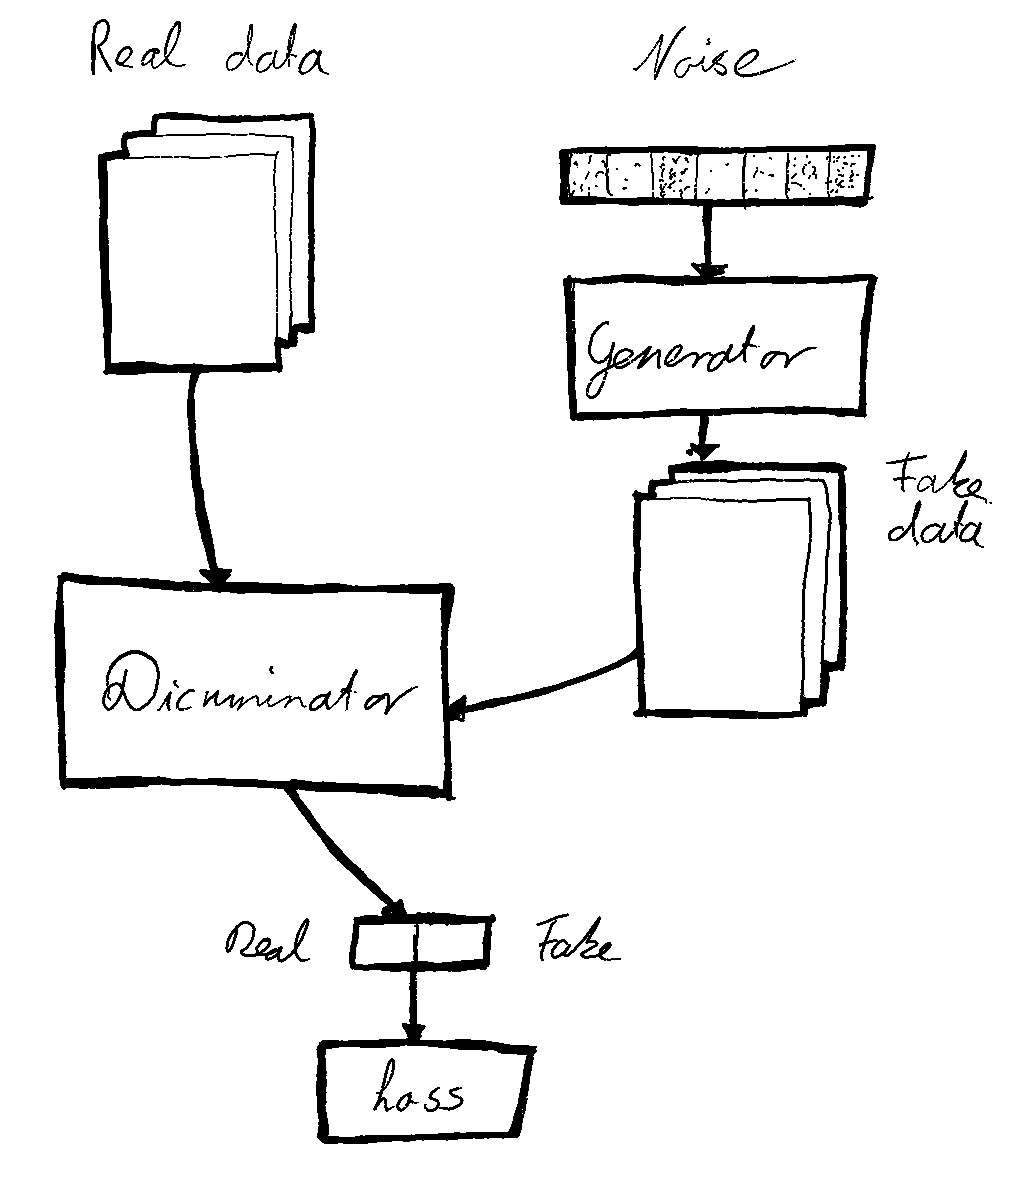 Real data
Noise
Generator
Fake
data
Dicriminator
Real
Fake
Loss